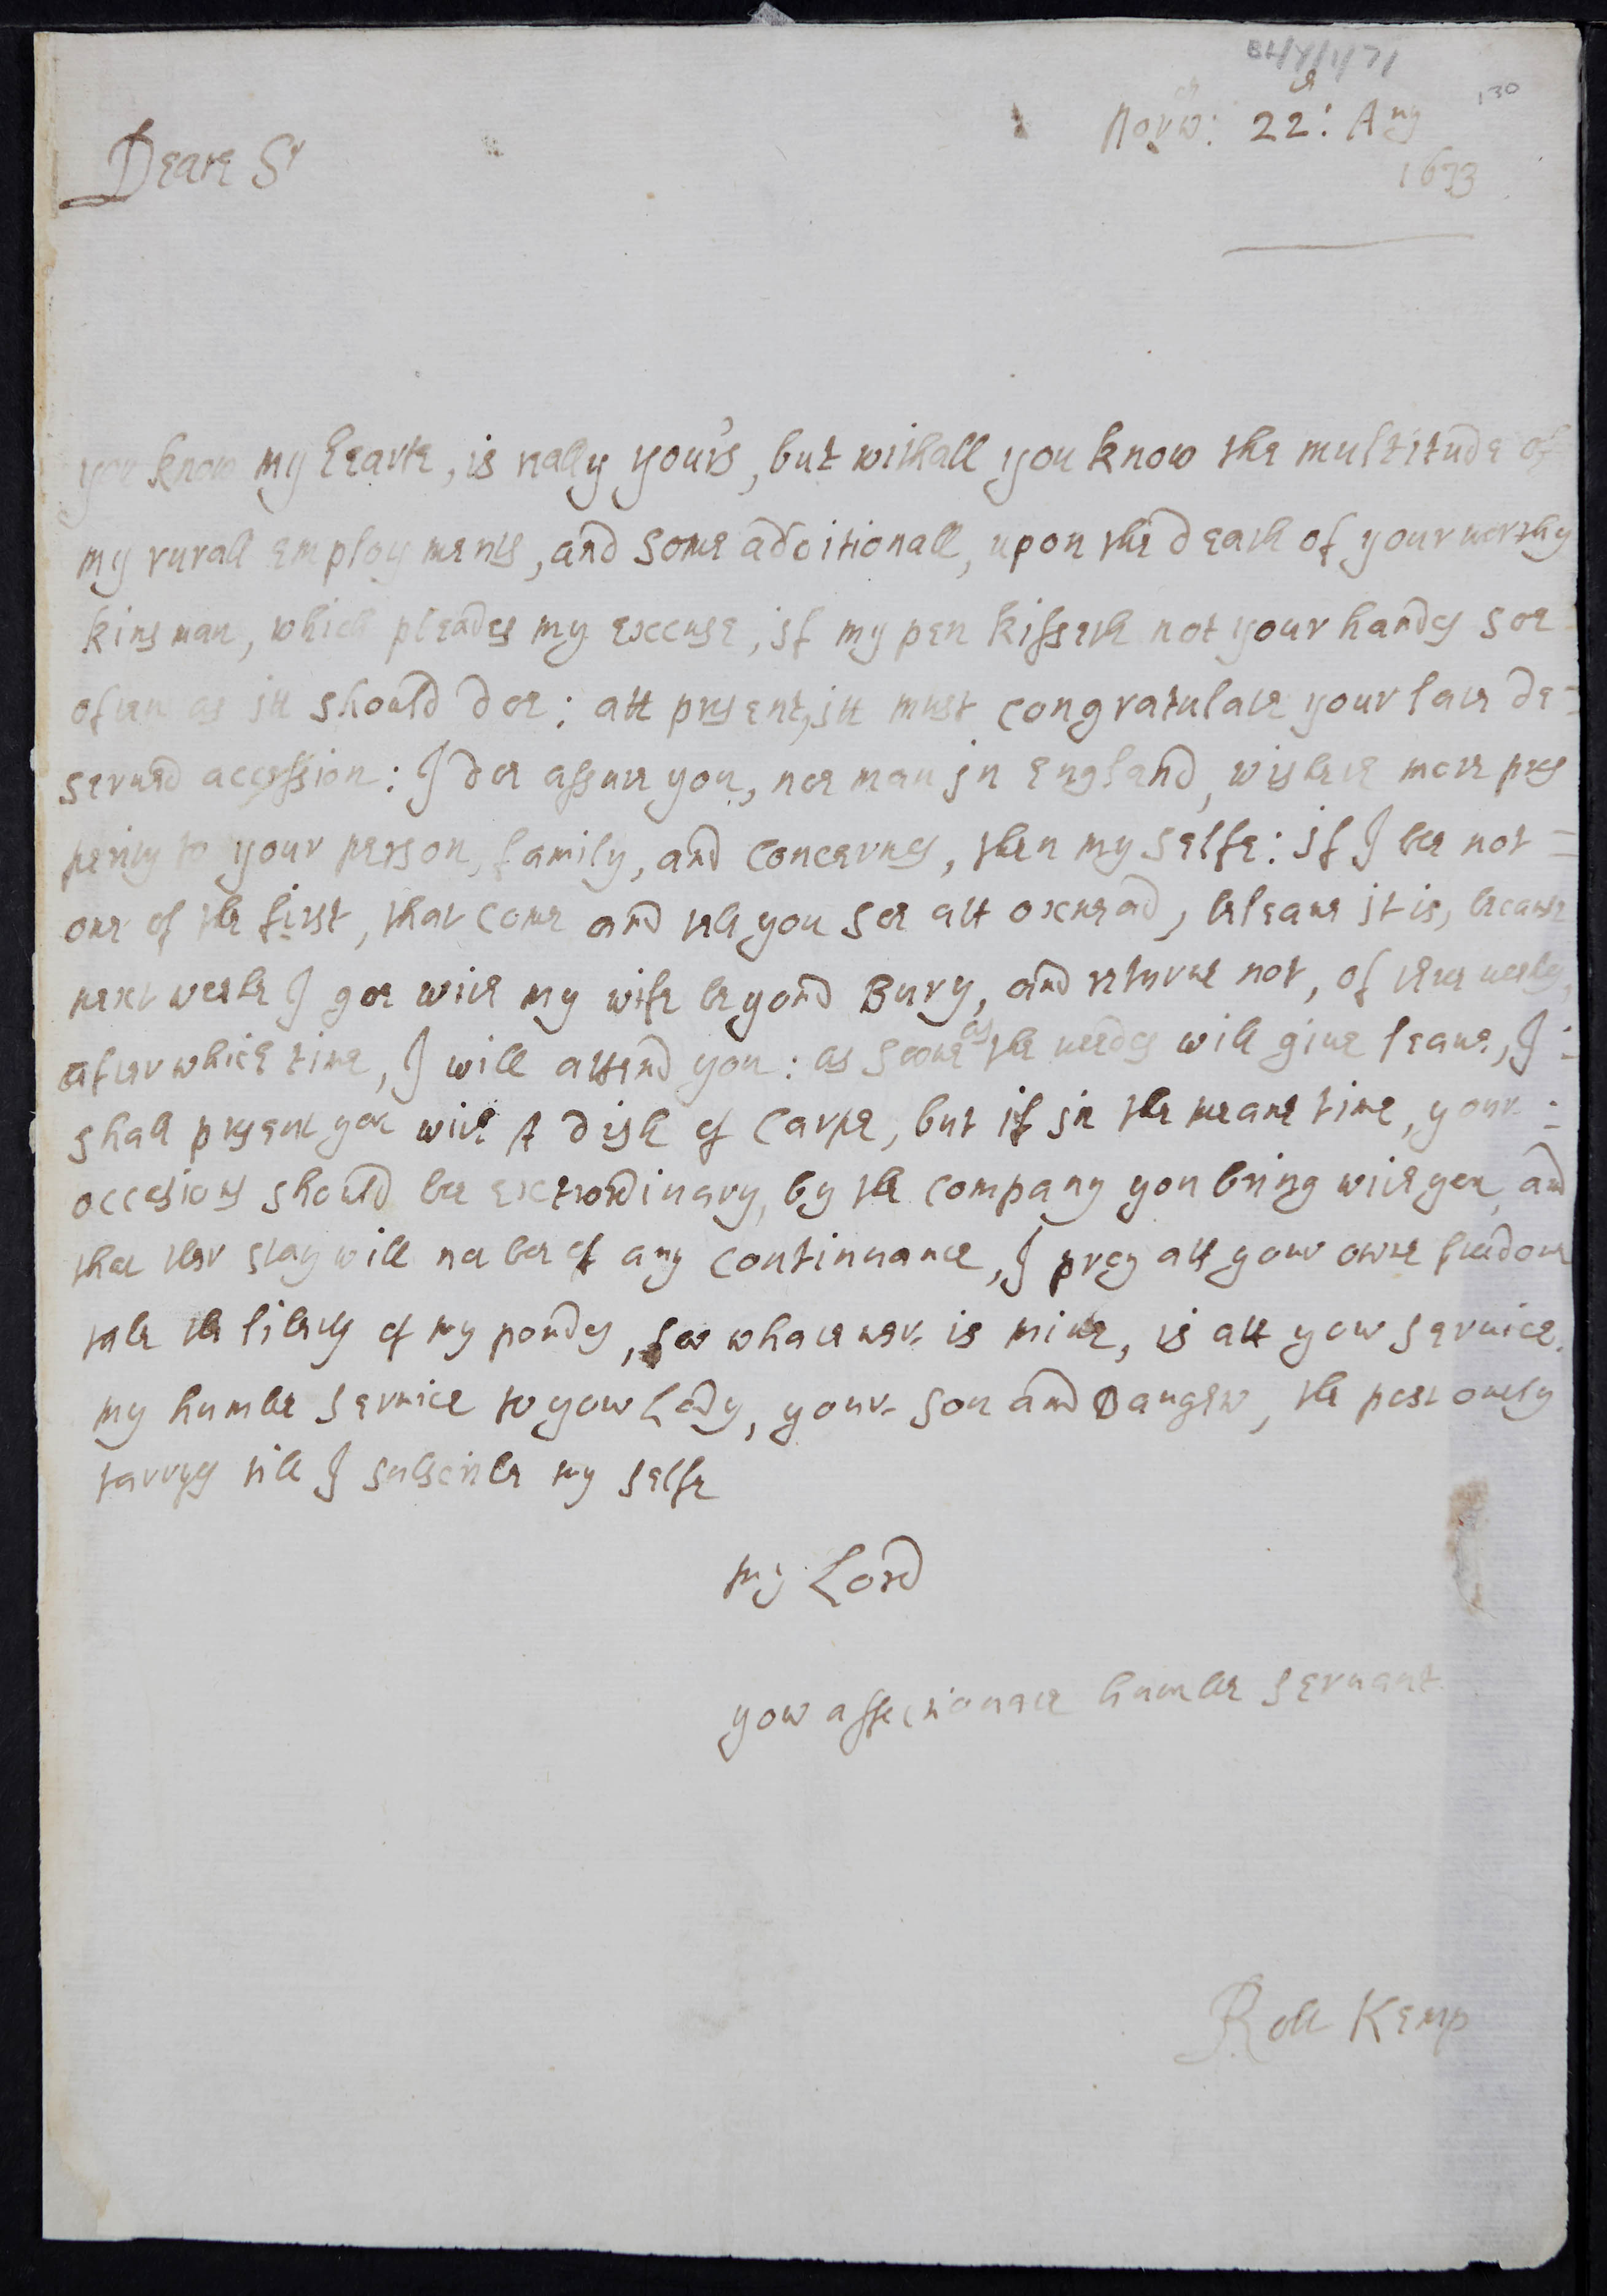 BL/Y/1/71
130
Norw: 22: Aug
1673
Deare Sr
you know my hearte, is really your's, but withall you know the multitude of
my rurall employments, and some additionall, upon the death of your worthy
kinsman, which pleades my excuse, if my pen kisseth not your handes soe
often as itt should doe: att present, itt must congratulate your late de=
serued accession: I doe assure you, noe man in England, wisheth more pros
perity to your person, family, and concernes, then my selfe: if I bee not =
one of the first, that come and tell you soe att oxnead, beleaue it is, because
next weeke I goe with my wife beyond Bury, and returne not, of three weekes,
after which time, I will attend you: as soone as the weedes will giue leaue, I =
shall present you with A dish of Carpe, but if in the meane time, your =
occasions should bee extraordinary, by the company you bring with you, and
that ther stay will not bee of any continuance, I pray att your owne freedome
take the liberty of my pondes, for whateuer is mine, is att your seruice.
my humble seruice to your Lady, your son and Daughter, the post onely
tarryes till I subscribe my selfe
my Lord
your affectionate humble seruant
Robt Kemp